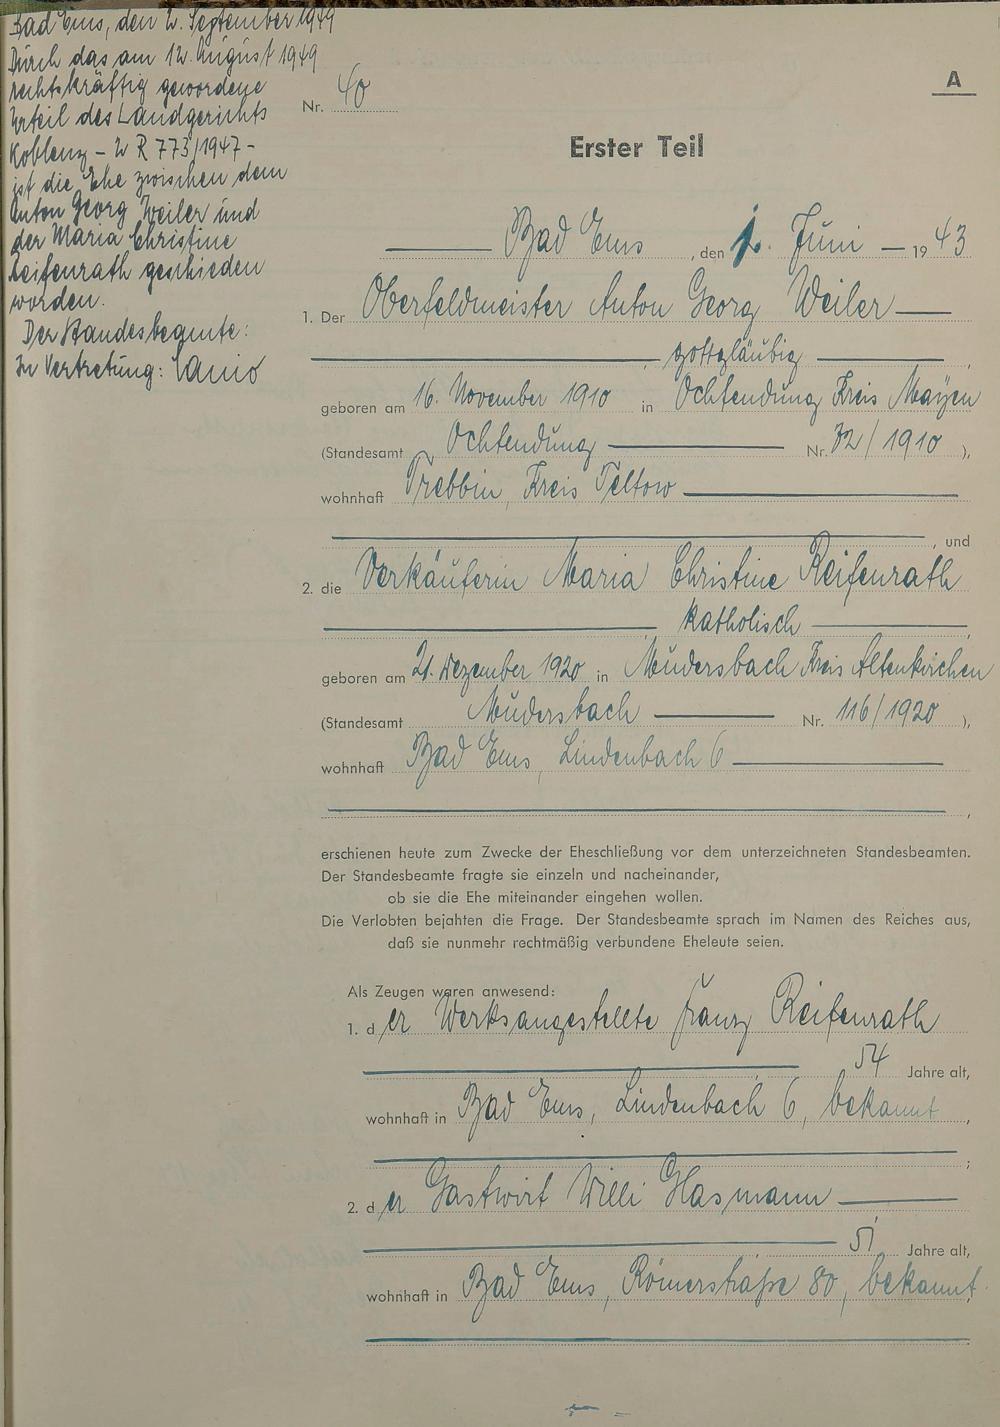 Bad Ems, den 2. September 1949
Durch das am 12. August 1949
rechtskräftig gewordene
Urteil des Landgerichts
Koblenz – 2 R 773/1947 –
ist die Ehe zwischen dem
Anton Georg Weiler und
der Maria Christine
Reifenrath geschieden
worden.
Der Standesbeamte:
In Vertretung:
A
Nr. 40
Erster Teil
Bad Ems, den 1. Juni 1943
1. Der Oberfeldmeister Anton Georg Weiler
, gottgläubig ,
geboren am 16. November 1910 in Ochtendung Kreis Mayen
(Standesamt Ochtendung Nr. 72/1910 ),
wohnhaft Trebbin, Kreis Teltow
, und
2. die Verkäuferin Maria Christine Reifenrath
katholisch ,
geboren am 21. Dezember 1920 in Mudersbach Kreis Altenkirchen
(Standesamt Mudersbach Nr. 116/1920 ),
wohnhaft Bad Ems, Lindenbach 6
,
erschienen heute zum Zwecke der Eheschließung vor dem unterzeichneten Standesbeamten.
Der Standesbeamte fragte sie einzeln und nacheinander,
ob sie die Ehe miteinander eingehen wollen.
Die Verlobten bejahten die Frage. Der Standesbeamte sprach im Namen des Reiches aus,
daß sie nunmehr rechtmäßig verbundene Eheleute seien.
Als Zeugen waren anwesend:
1. der Werksangestellte Franz Reifenrath
, 54 Jahre alt,
wohnhaft in Bad Ems, Lindenbach 6, bekannt ,
;
2. der Gastwirt Willi Glasmann
, 51 Jahre alt,
wohnhaft in Bad Ems, Römerstraße 80, bekannt